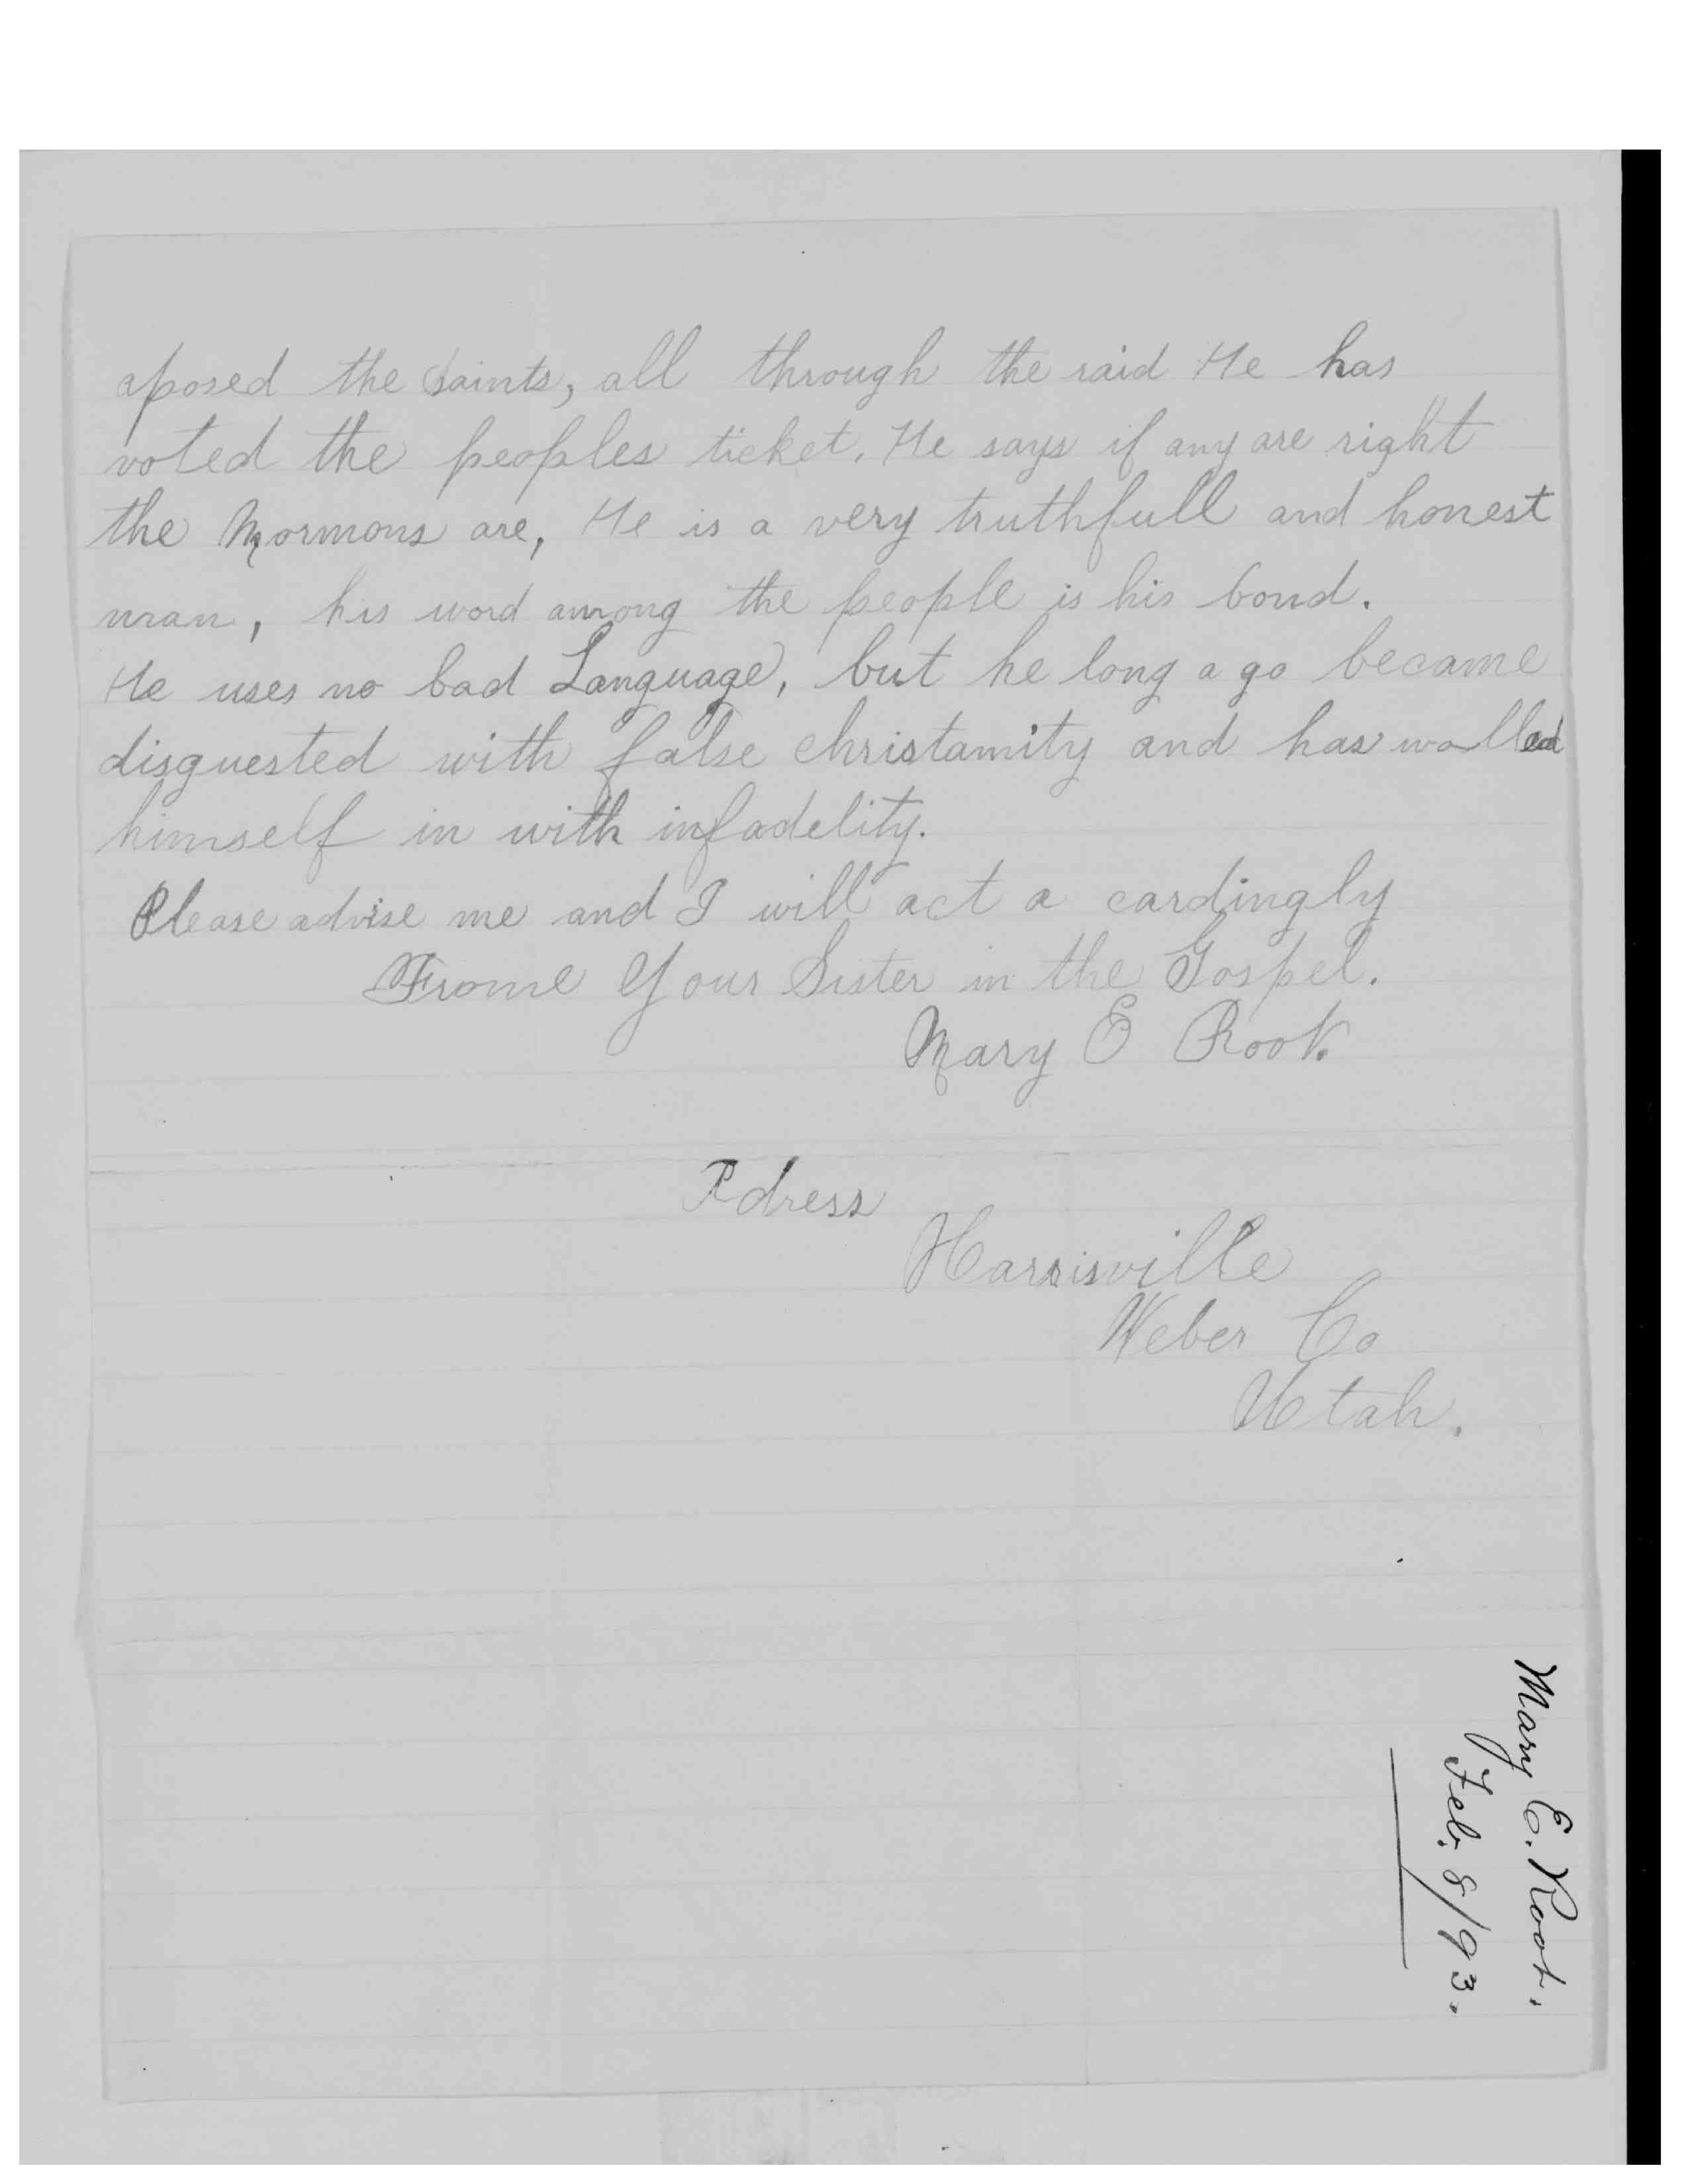 aposed the Saints, all through the raid He has
voted the peoples ticket. He says if any are right
the Mormons are, He is a very truthfull and honest
man, his word among the people is his bond.
He uses no bad Language, but he long a go became
disguested with false christamity and has walled
himself in with infadelity.
Please advise me and I will act a cardingly
Frome Your Sister in the Gospel.
Mary E Root.
Adress
Harrisville
Weber Co
Utah.
Mary E. Root.
Feb. 8/93.